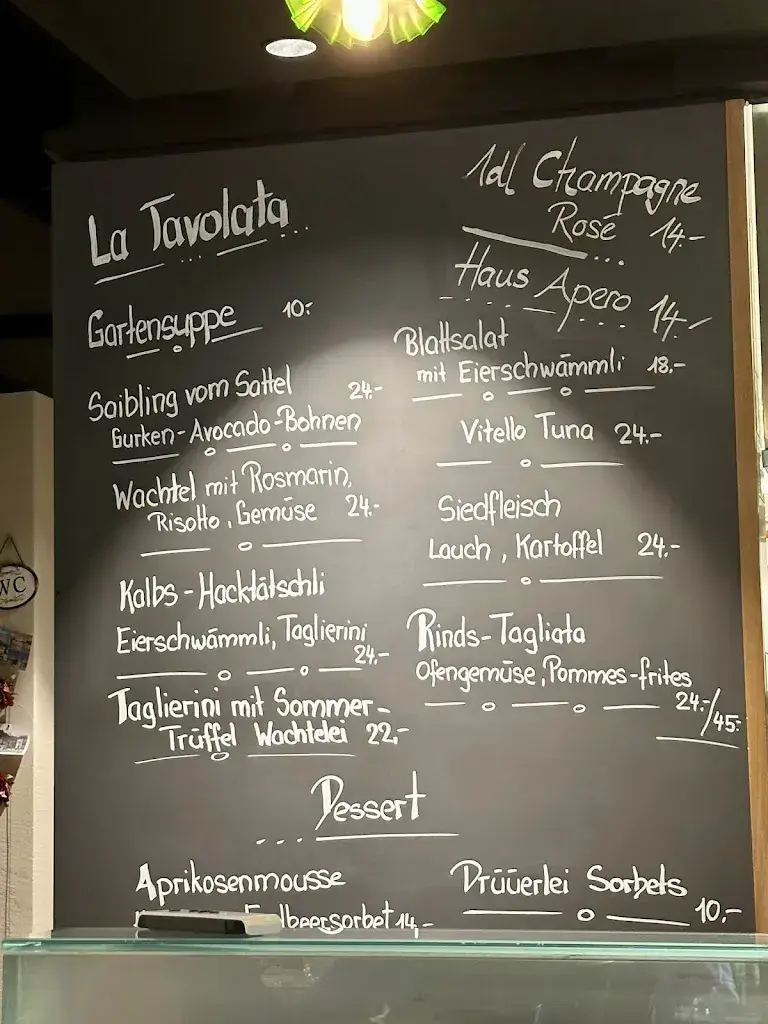 La Tavolata
1dl Champagne
Rosé 14.-
Haus Apero 14.-
Gartensuppe 10.-
Saibling vom Sattel 24.-
Gurken-Avocado-Bohnen
Wachtel mit Rosmarin,
Risotto, Gemüse 24.-
Kalbs-Hacktätschli
Eierschwämmli, Taglierini
24.-
Taglierini mit Sommer-
Trüffel Wachtelei 22.-
Blattsalat
mit Eierschwämmli 18.-
Vitello Tuna 24.-
Siedfleisch
Lauch, Kartoffel 24.-
Rinds-Tagliata
Ofengemüse, Pommes-frites
24.-/45.-
Dessert
Aprikosenmousse
Erdbeersorbet 14.-
Drüüerlei Sorbets
10.-
WC